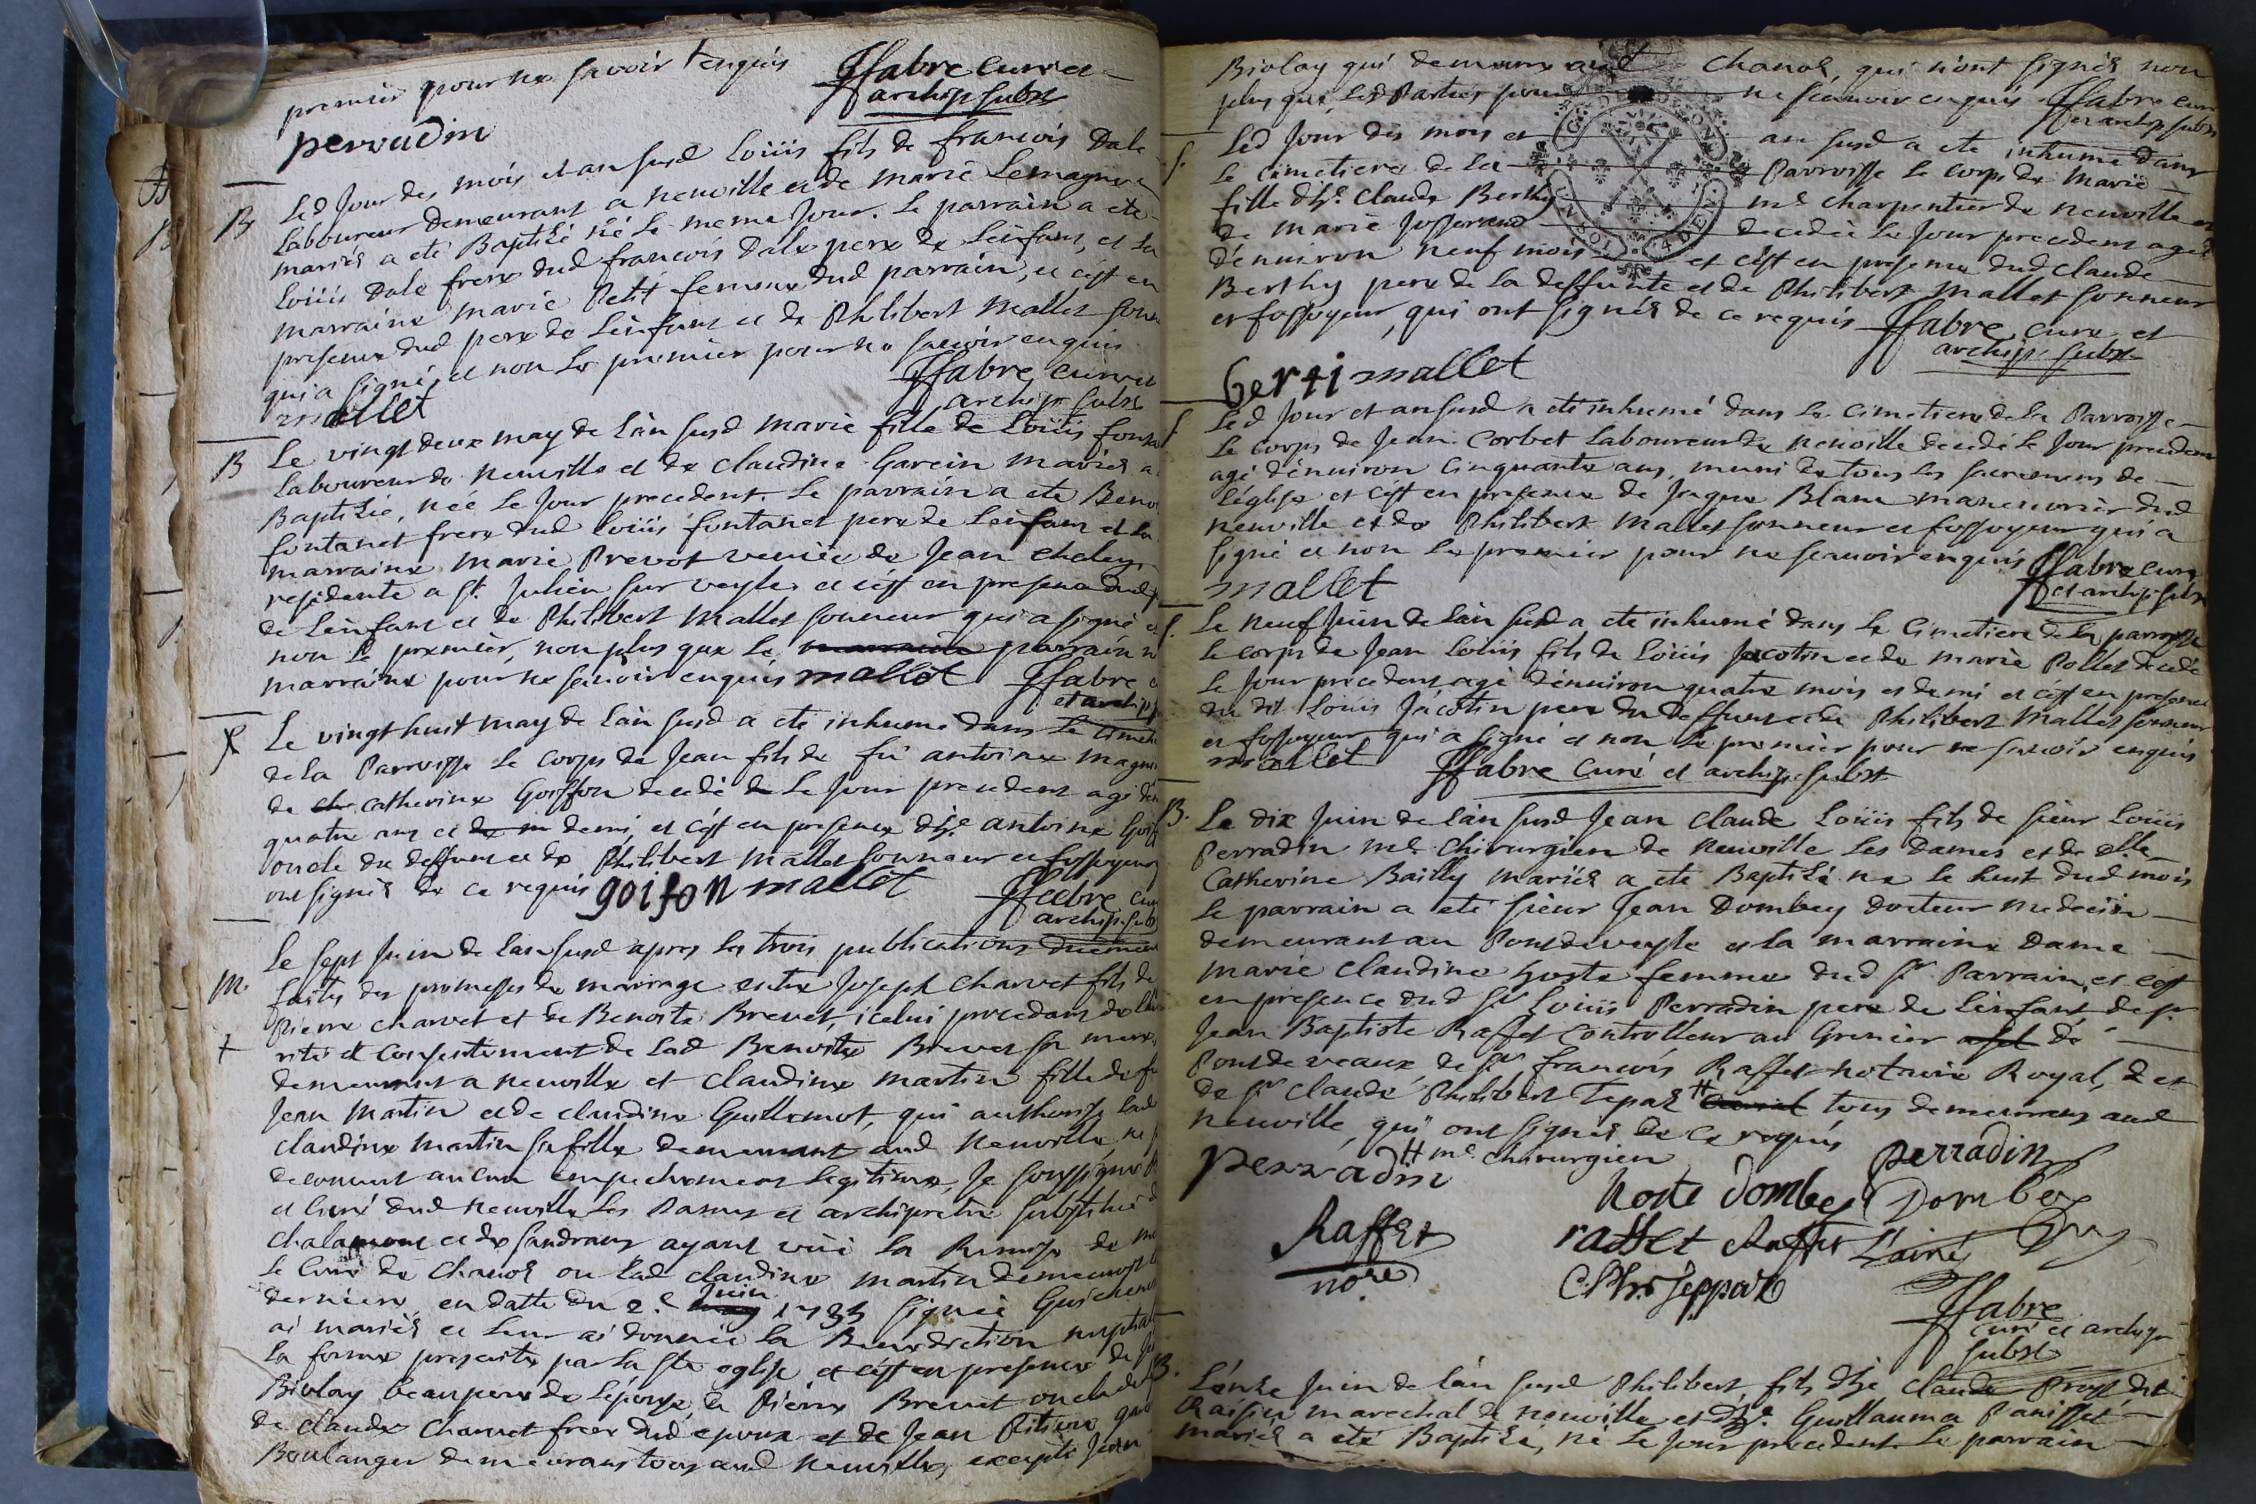 premier pour ne savoir enquis ffabre curé et
archip subst
perradin
B
Led jour des mois et an susd Loüis fils de francois Dale
Laboureur demeurant a neuville et de Marie Lemagne
mariés a eté Baptisé né Le meme Jour. Le parrain a eté
Loüis Dale frere dud francois Dale pere de Lenfant, et La
marraine marie Petit femme dud parrain, et c'est en
presence dud pere de Lenfant et de Philibert Mallet sonn
qui a signé, et non Le premier pour ne savoir enquis
mallet ffabre curé et
archip subst
B
Le vingt deux may de Làn susd Marie fille de Loüis fontanet
Laboureur de neuville et de claudine Garcin mariés a
Baptisée, née Le Jour precedent. Le parrain a eté Benoi
fontanet frere dud Loüis fontanet pere de Lenfant et la
marraine marie Prevot veuve de Jean
residente a St. Julien sur veyle et c'est en presence dud
de Lenfant et de Philibert Mallet sonneur qui a signé et
non Le premier, non plus que Le marraine parrain n
marraine pour ne savoir enquis mallet ffabre c
et archip
Le vingt huit may de Làn susd a eté inhumé dans Le cimeti
de La Parroisse Le corps de Jean fils de fû antoine magn
de catherine Goiffon decedé de Le Jour precedent agé d'en
quatre ans et de demi, et c'est en presence d'h.e antoine Goif
oncle du deffunt et de Philibert Mallet sonneur et fossoyeur
ont signés de ce requis goifon mallet ffabre cur
archip. sub
M.
+
Le sept Juin de Làn susd apres Les trois publications duement
faites des promesses de mariage entre Joseph charvet fils de
Pierre charvet et de Benoite Brevet, icelui procedant de L'au
rité et consentement de Lad Benoite Brevet sa mere,
demeurant a neuville et claudine martin fille de f
Jean Martin et de claudine Guillemot, qui authorise Lad
claudine martin sa fille demeurant aud neuville, ne
decouvert aucun empechement legitime, Je soussigné
et curé dud neuville Les Dames et archiprêtre substitué
chalamont et de sandrans ayant vüe La Remise de
Le curé de Chanos ou Lad claudine martin demeuroit
derniere en datte du 2.e may Juin 1735 signée Guichen
ai mariés et Leur ai donnée La Benediction nuptial
La forme prescrite par La Ste eglise et c'est en presence de
Biolay beaupere de Lépouse, de Pierre Brevet oncle de
de claude charvet frere dud epoux et de Jean
Boulanger demeurans tous aud neuville, excepté Jean
Biolay qui demeure aud Chanos, qui n'ont signés non
plus que Les Parties pour ne scavoir enquis. ffabre curé
et archip subst
S.
Led Jour des mois et an susd a eté inhumé dans
Le cimetiere de La Parroisse Le corps de Marie
fille d'h.e claude Berthy m.e charpentier de neuville et
de marie Josserand decedée Le Jour precedent agée
d'environ neuf mois et c'est en presence dud claude
Berthy pere de La deffunte et de Philibert Mallet sonneur
et fossoyeur, qui ont signés de ce requis ffabre, curé et
archip. subst
berti mallet
S
Led Jour et an susd a eté inhumé dans Le cimetiere de La Parroisse
Le corps de Jean Corbet Laboureur de neuville decedé Le Jour precedent
agé d'environ cinquante ans, muni de tous Les sacremens de
L'église et c'est en presence de Jaque Blanc manouvrier dud
neuville et de Philibert Mallet sonneur et fossoyeur qui a
signé et non Le premier pour ne scavoir enquis ffabre curé
et archip subst
mallet
S.
Le neuf Juin de Làn susd a eté inhumé dans Le cimetiere de La parroisse
Le corps de Jean Loüis fils de Loüis Jacotin et de marie Pollet decedé
Le Jour precedent agé d'environ quatre mois et demi et c'est en presence
du dit Loüis Jacotin pere du deffunt et de Philibert Mallet sonneur
et fossoyeur qui a signé et non Le premier pour ne savoir enquis
mallet ffabre curé et archip. subst
B.
Le dix Juin de Làn susd Jean Claude Loüis fils de sieur Loüis
Perradin m.e chirurgien de neuville Les Dames et de dlle
Catherine Bailly mariés a eté Baptisé né le huit dud mois
Le parrain a eté sieur Jean Dombey docteur medecin
demeurant au Pontdeveyle et la marraine Dame
Marie Claudine hoste femme dud sr Parrain, et c'est
en presence dud Sr Loüis Perradin pere de Lenfant, de sr
Jean Baptiste Raffet controlleur au Grenier asel de
Pontdevaux, de sr francois Raffet notaire Royal, et
de sr claude Philibert Tepas # tous demeurans aud
neuville, qui ont signés de ce requis
# m.e chirurgien
perradin perradin
hoste dombey Dombey
Raffet
nore
raffet Raffet L'ainé
C. Phr. Teppas
ffabre
curé et archip
subst
B.
L'onze Juin de Làn susd Philibert, fils d'h.e claude Prost dit
Raisin marechal de neuville et d'h.e Guillauma Panisset
mariés a eté Baptisé, né Le Jour precedent. Le parrain